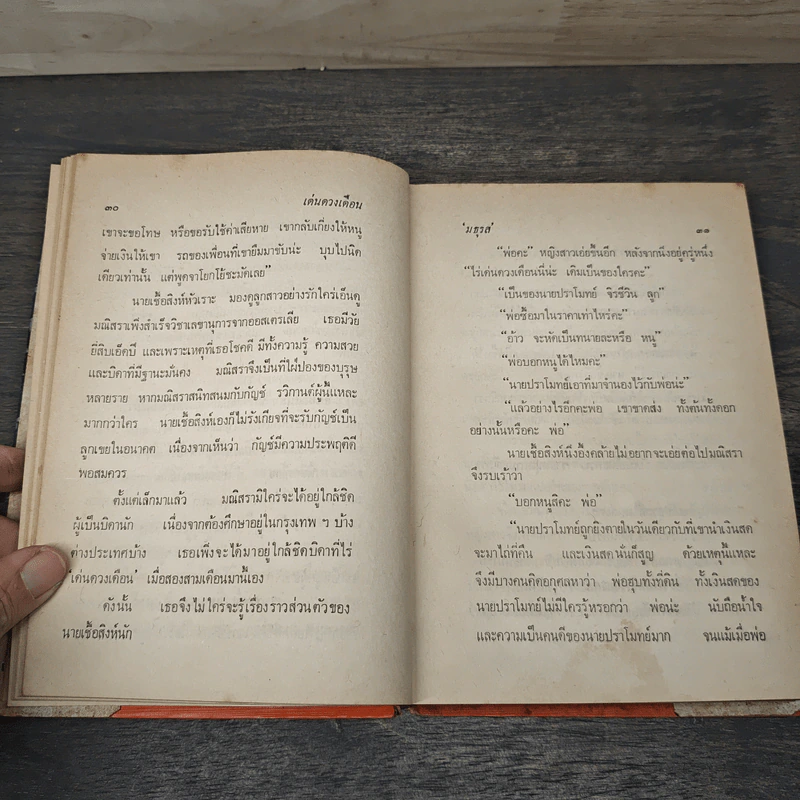 ๓๐ เด่นดวงเดือน
เขาจะขอโทษ หรือขอรับใช้ค่าเสียหาย เขากลับเกี่ยงให้หนู
จ่ายเงินให้เขา รถของเพื่อนที่เขายืมมาขับน่ะ บุบไปนิด
เดียวเท่านั้น แต่พูดจาโยกโย้ซะมัดเลย”
นายเชื้อสิงห์หัวเราะ มองดูลูกสาวอย่างรักใคร่เอ็นดู
มณิสราเพิ่งสำเร็จวิชาเลขานุการจากออสเตรเลีย เธอมีวัย
ยี่สิบเอ็ดปี และเพราะเหตุที่เธอโชคดี มีทั้งความรู้ ความสวย
และบิดาที่มีฐานะมั่นคง มณิสราจึงเป็นที่ใฝ่ปองของบุรุษ
หลายราย หากมณิสราสนิทสนมกับกัญช์ รวิกานต์ผู้นี้แหละ
มากกว่าใคร นายเชื้อสิงห์เองก็ไม่รังเกียจที่จะรับกัญช์เป็น
ลูกเขยในอนาคต เนื่องจากเห็นว่า กัญช์มีความประพฤติดี
พอสมควร
ตั้งแต่เล็กมาแล้ว มณิสรามิใคร่จะได้อยู่ใกล้ชิด
ผู้เป็นบิดานัก เนื่องจากต้องศึกษาอยู่ในกรุงเทพ ฯ บ้าง
ต่างประเทศบ้าง เธอเพิ่งจะได้มาอยู่ใกล้ชิดบิดาที่ไร่
‘เด่นดวงเดือน’ เมื่อสองสามเดือนมานี้เอง
ดังนั้น เธอจึงไม่ใคร่จะรู้เรื่องราวส่วนตัวของ
นายเชื้อสิงห์นัก
‘มธุรส’ ๓๑
“พ่อคะ” หญิงสาวเอ่ยขึ้นอีก หลังจากนิ่งอยู่ครู่หนึ่ง
“ไร่เด่นดวงเดือนนี่น่ะ เดิมเป็นของใครคะ”
“เป็นของนายปราโมทย์ จิรชีวิน ลูก”
“พ่อซื้อมาในราคาเท่าไหร่คะ”
“อ้าว จะหัดเป็นทนายละหรือ หนู”
“พ่อบอกหนูได้ไหมคะ”
“นายปราโมทย์เอาที่มาจำนองไว้กับพ่อน่ะ”
“แล้วอย่างไรอีกคะพ่อ เขาขาดส่ง ทั้งต้นทั้งดอก
อย่างนั้นหรือคะ พ่อ”
นายเชื้อสิงห์นิ่งอึ้งคล้ายไม่อยากจะเอ่ยต่อไปมณิสรา
จึงรบเร้าว่า
“บอกหนูสิคะ พ่อ”
“นายปราโมทย์ถูกยิงตายในวันเดียวกับที่เขานำเงินสด
จะมาไถ่ที่คืน และเงินสดนั่นก็สูญ ด้วยเหตุนี้แหละ
จึงมีบางคนคิดอกุศลหาว่า พ่อฮุบทั้งที่ดิน ทั้งเงินสดของ
นายปราโมทย์ไม่มีใครรู้หรอกว่า พ่อน่ะ นับถือน้ำใจ
และความเป็นคนดีของนายปราโมทย์มาก จนแม้เมื่อพ่อ